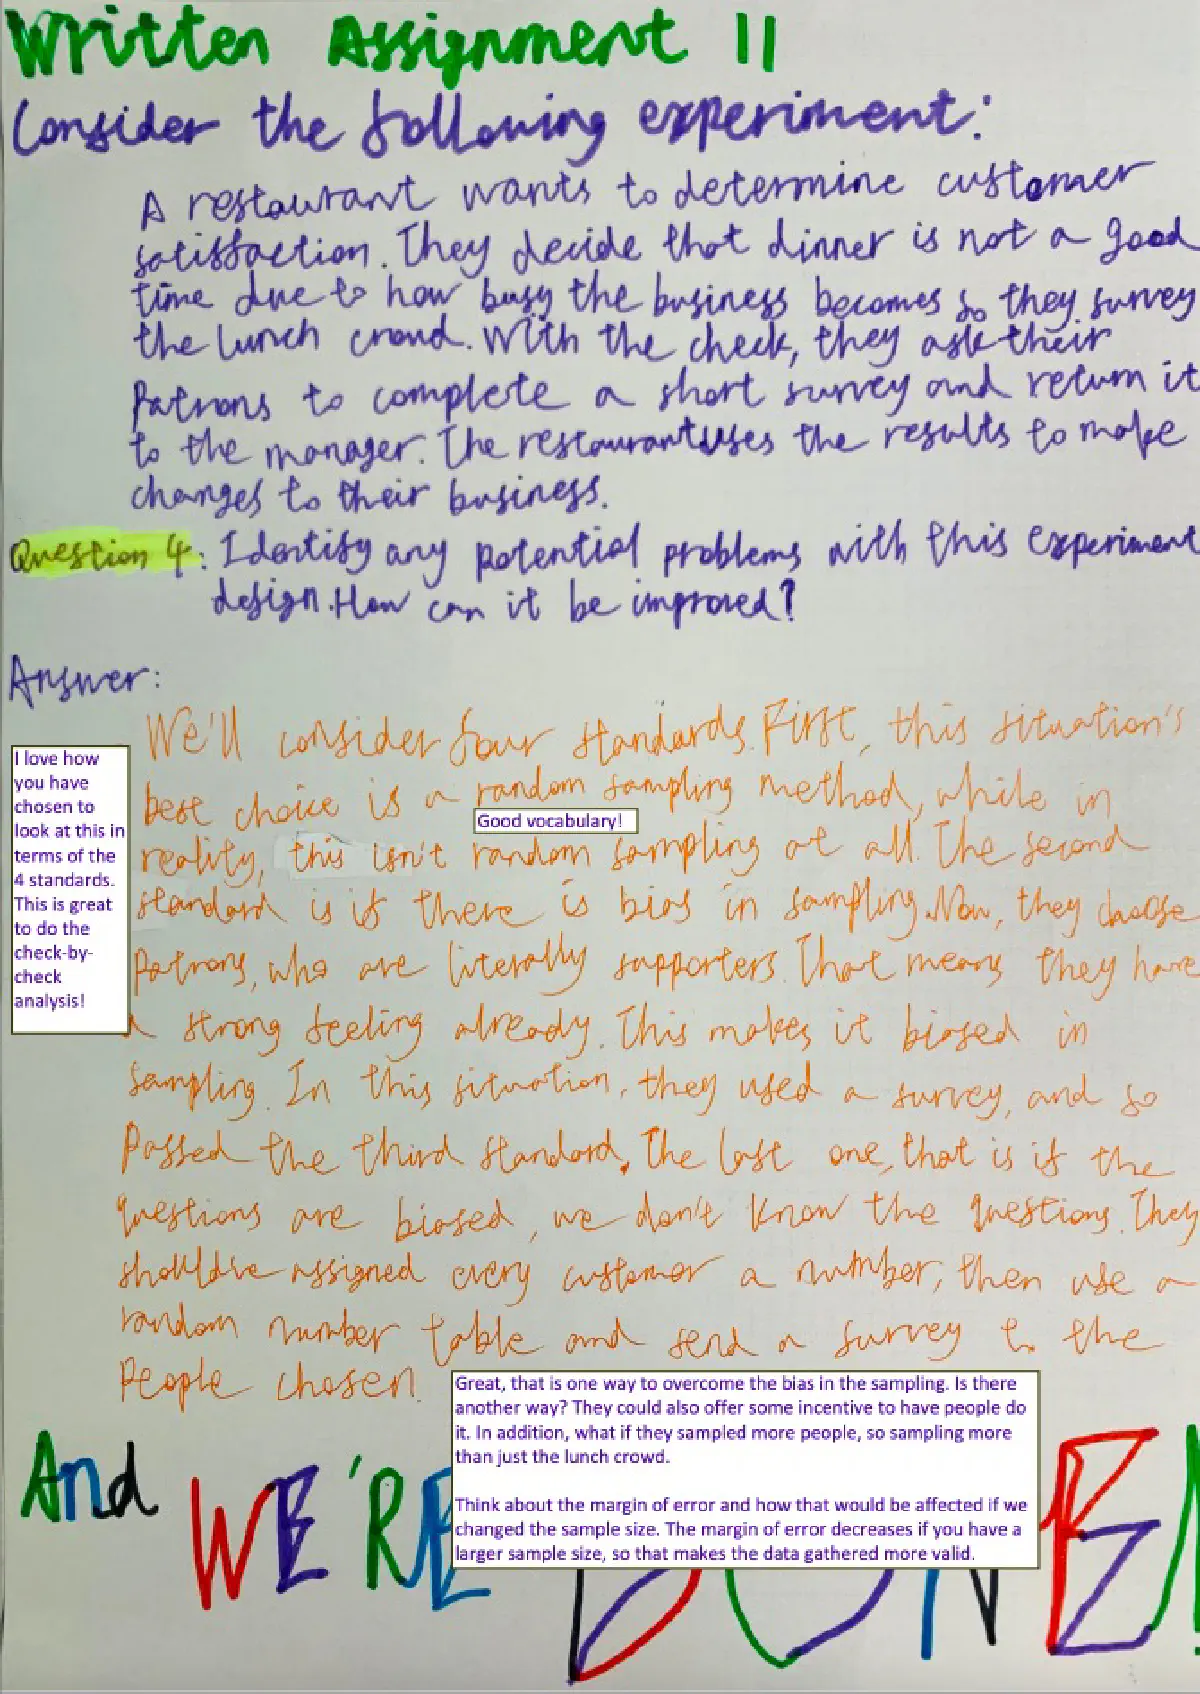 Written Assignment 11
Consider the following experiment:
A restaurant wants to determine customer
satisfaction. They decide that dinner is not a good
time due to how busy the business becomes so they survey
the lunch crowd. With the check, they ask their
patrons to complete a short survey and return it
to the manager. The restaurant uses the results to make
changes to their business.
Question 4: Identify any potential problems with this experiment
design. How can it be improved?
Answer:
We'll consider four standards. First, this situation's
best choice is a random sampling method, while in
reality, this isn't random sampling at all. The second
standard is if there is bias in sampling. Now, they choose
patrons, who are literally supporters. That means they have
a strong feeling already. This makes it biased in
sampling. In this situation, they used a survey, and so
passed the third standard. The last one, that is if the
questions are biased, we don't know the questions. They
should've assigned every customer a number, then use a
random number table and send a survey to the
people chosen.
I love how
you have
chosen to
look at this in
terms of the
4 standards.
This is great
to do the
check-by-
check
analysis!
Good vocabulary!
Great, that is one way to overcome the bias in the sampling. Is there
another way? They could also offer some incentive to have people do
it. In addition, what if they sampled more people, so sampling more
than just the lunch crowd.
Think about the margin of error and how that would be affected if we
changed the sample size. The margin of error decreases if you have a
larger sample size, so that makes the data gathered more valid.
And WE'RE DONE!